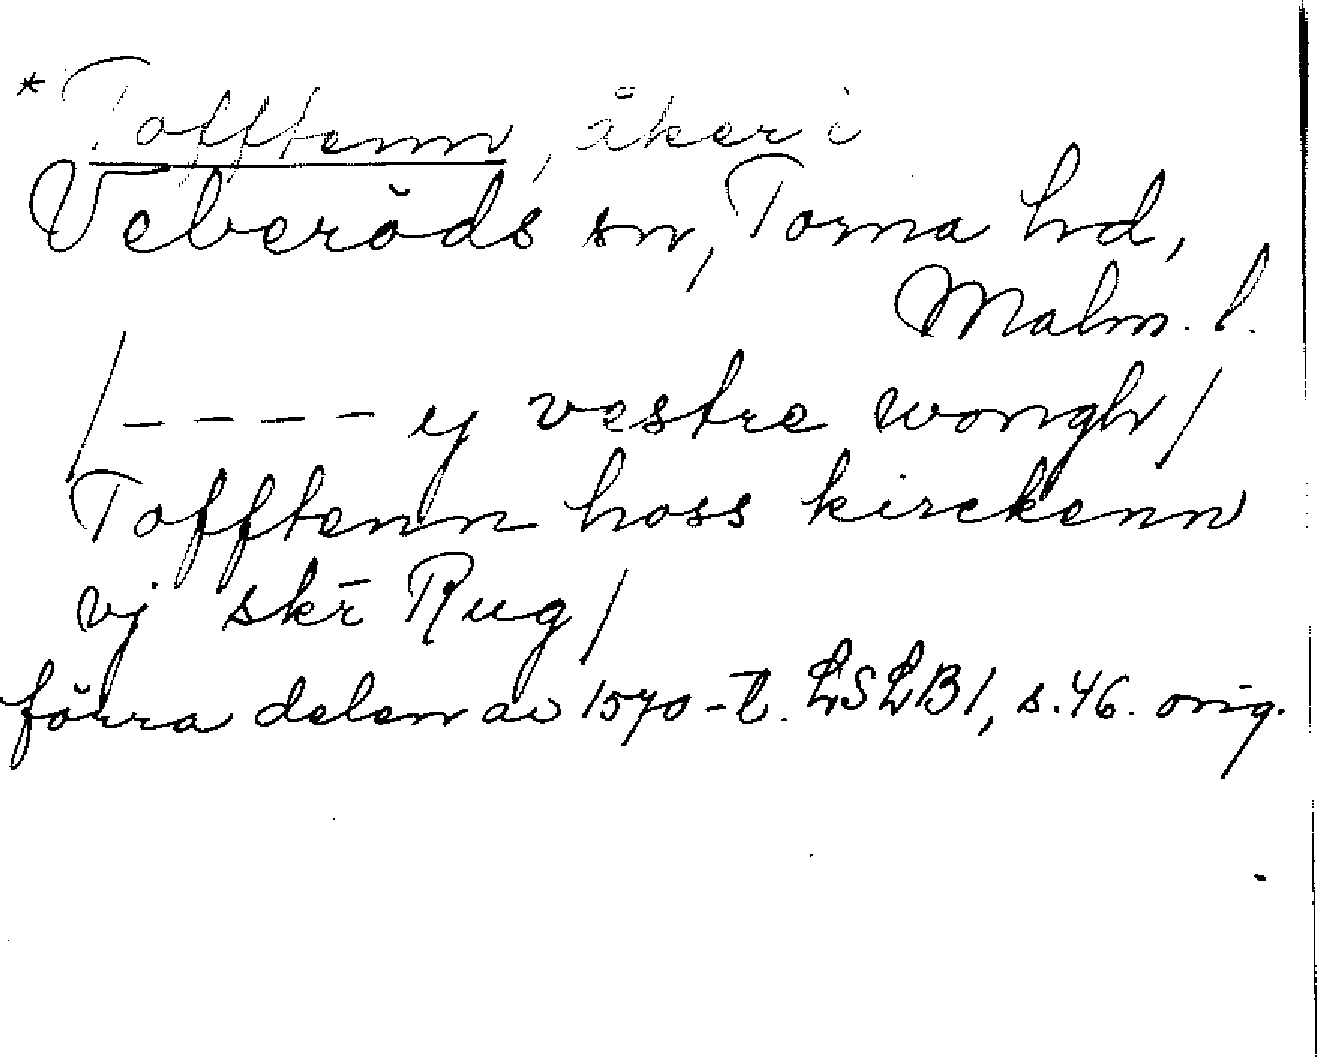 * Tofftenn, åker i
Veberöds sn, Torna hd,
Malm. l.
/ - - - - y vestre wongh /
Tofftenn hoss kirckenn
vj skr̄ Rug /
förra delen av 1570-t. LSLB 1, s. 46. orig.